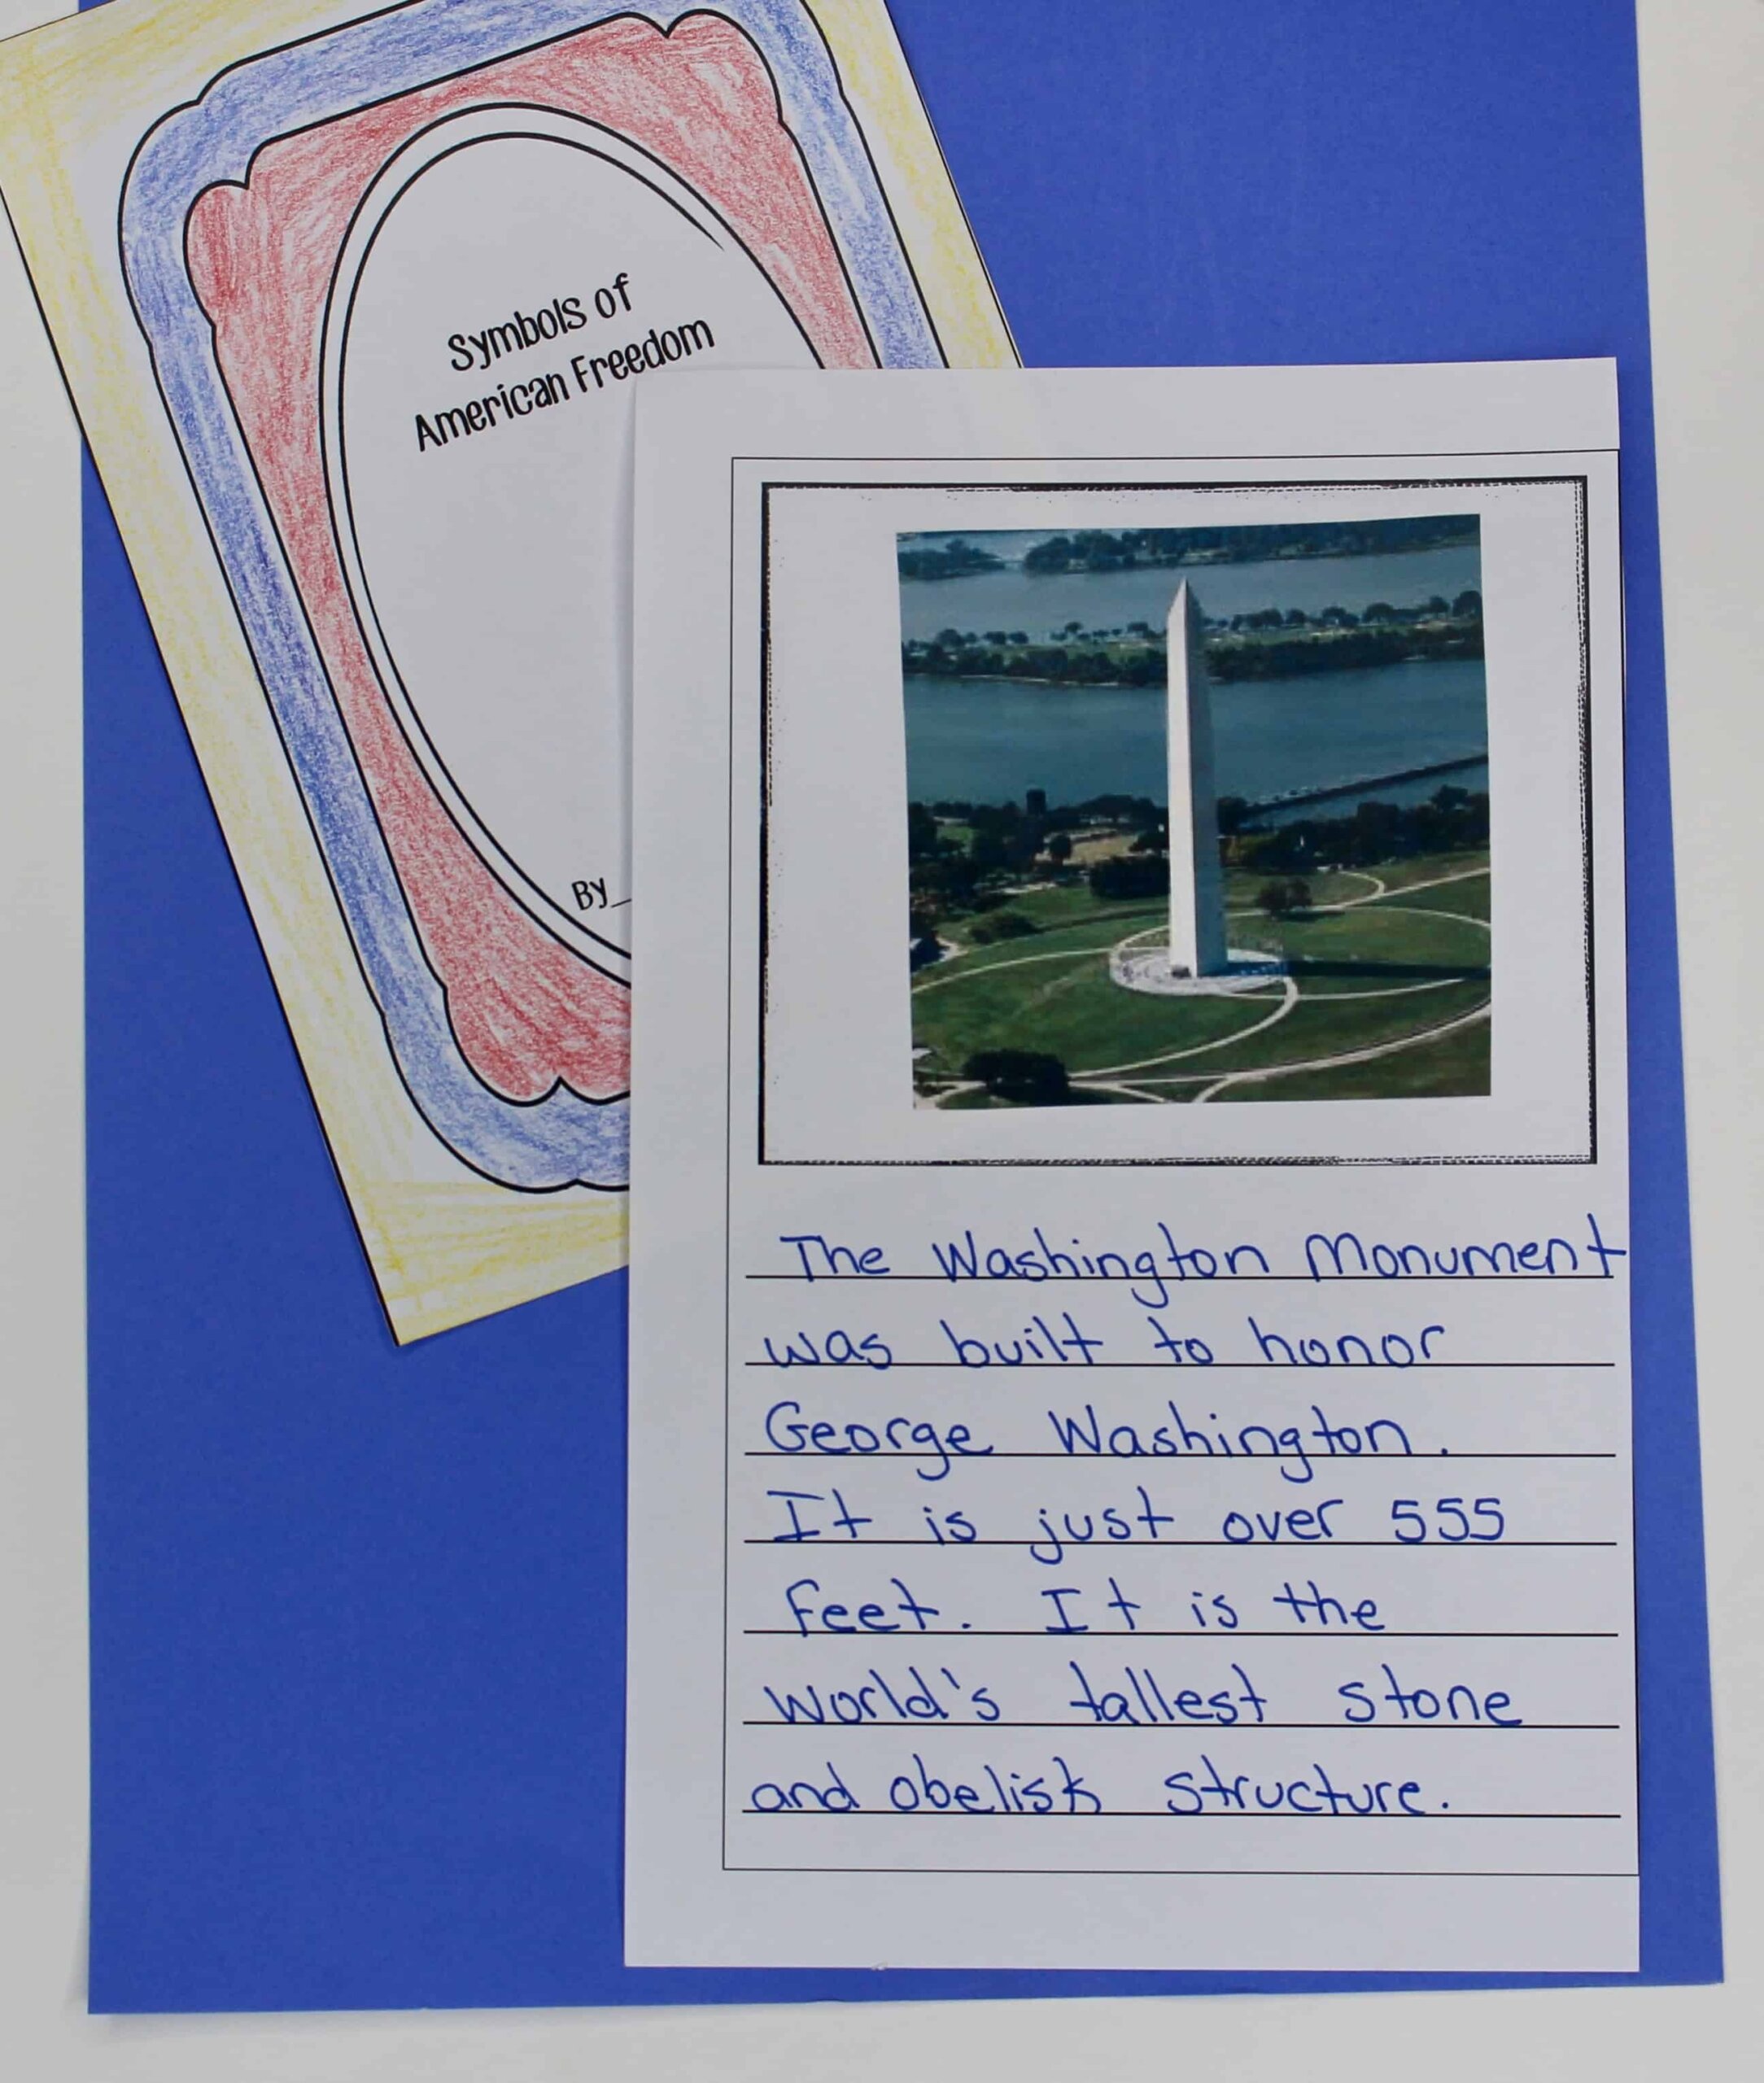 Symbols of
American Freedom
By
The Washington Monument
was built to honor
George Washington.
It is just over 555
feet. It is the
world's tallest stone
and obelisk structure.